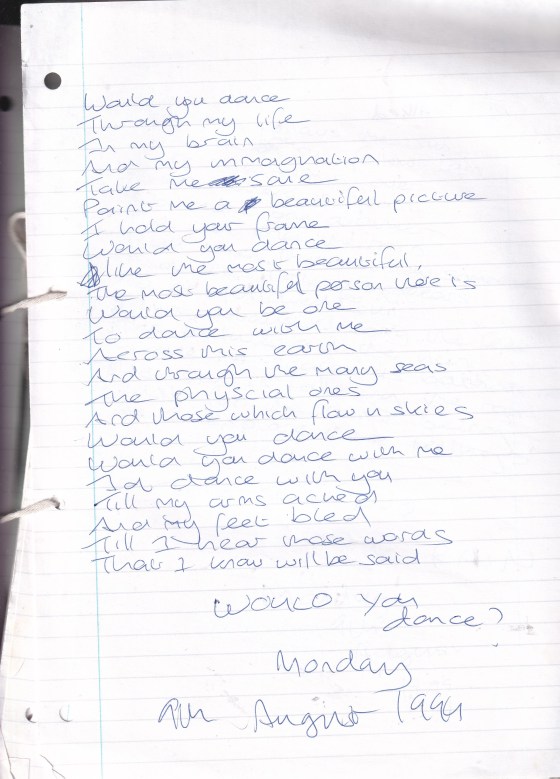 Would you dance
Through my life
In my brain
And my immagnation
Take me sane
Paint me a beautiful picture
I hold your frame
Would you dance
like the most beautiful,
The most beautiful person there is
Would you be one
To dance with me
Across this earth
And through the many seas
The physcial ones
And those which flow n skies
Would you dance
Would you dance with me
I'd dance with you
Till my arms ached
And my feet bled
Till I hear those words
That I know will be said
Would you
dance?
Monday
9th August 199